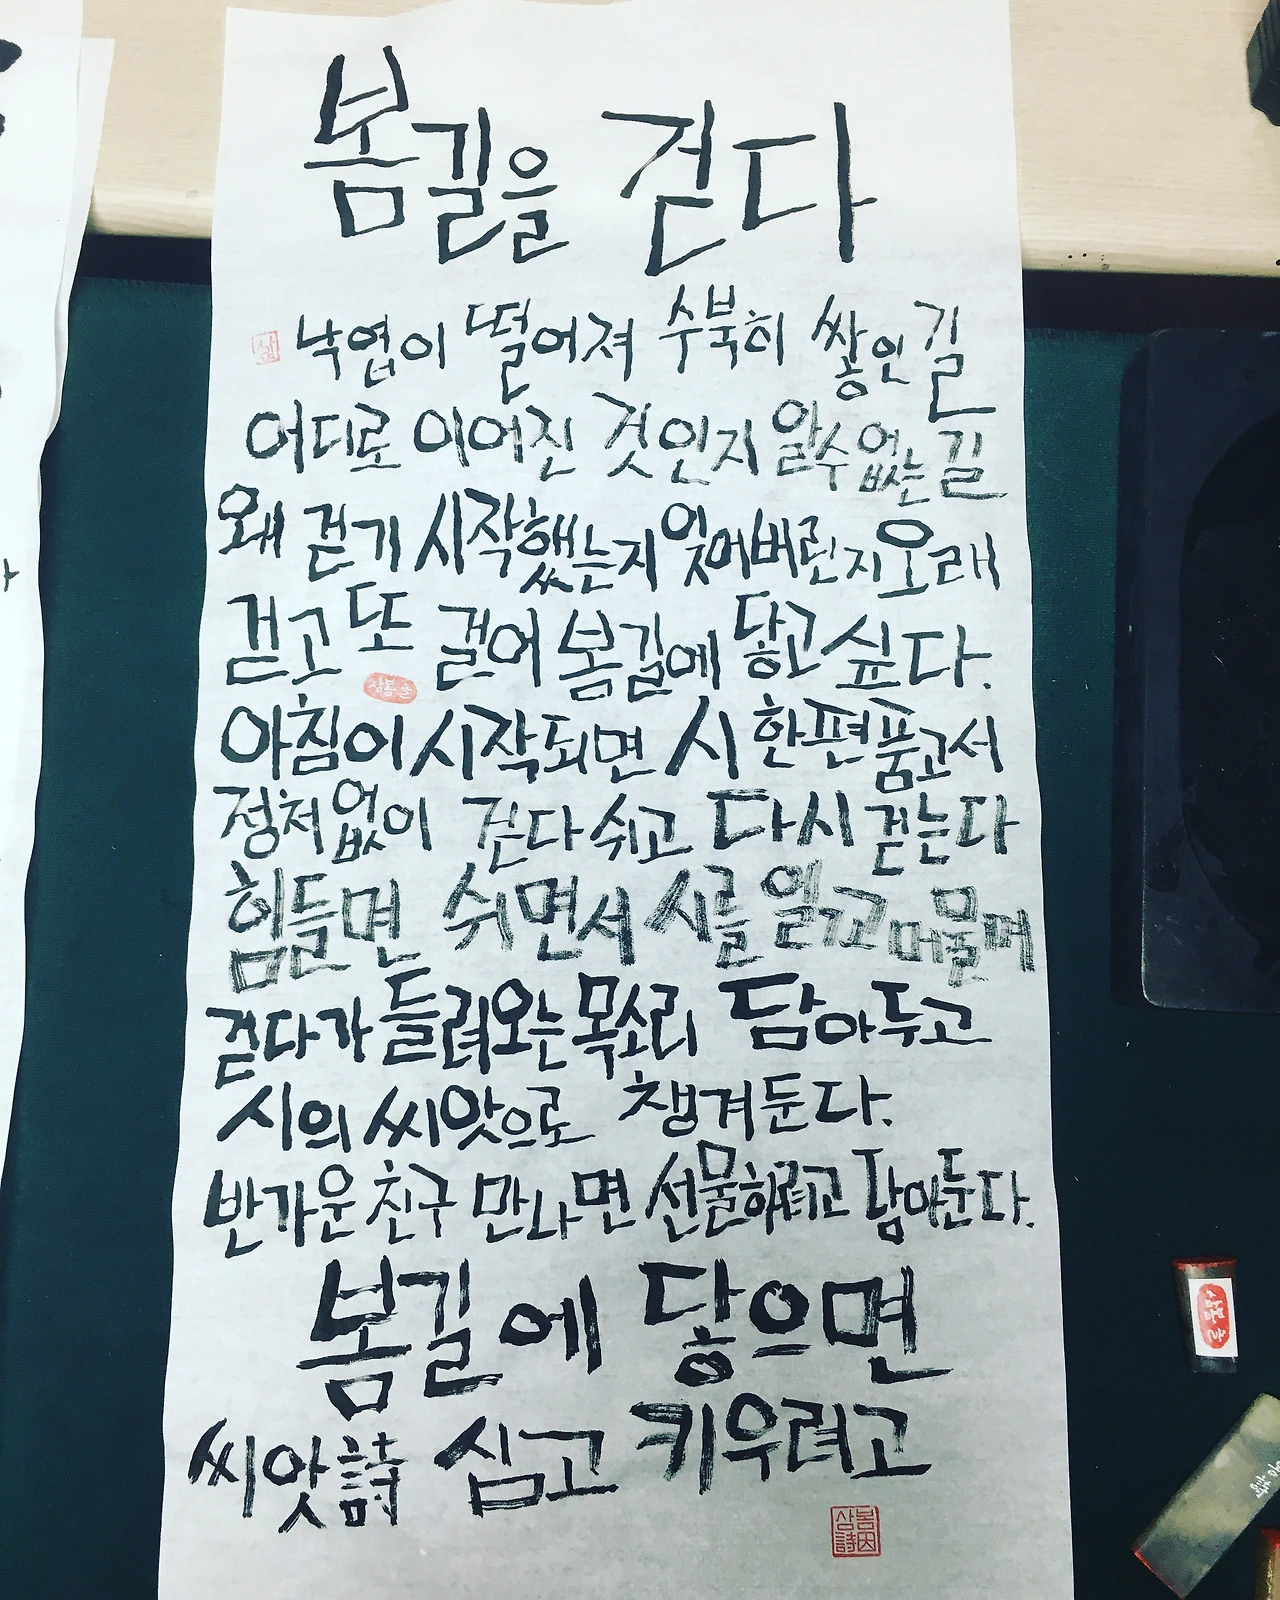 봄길을 걷다
삶
낙엽이 떨어져 수북히 쌓인 길
어디로 이어진 것인지 알수없는 길
왜 걷기 시작했는지 잊어버린지 오래
걷고 또 걸어 봄길에 닿고 싶다.
아침이 시작되면 시 한편 품고서
정처없이 걷다 쉬고 다시 걷는다
힘들면 쉬면서 시를 읽고 머물며
걷다가 들려오는 목소리 담아두고
시의 씨앗으로 챙겨둔다.
반가운 친구 만나면 선물하려고 담아둔다.
봄길에 닿으면
씨앗詩 심고 키우려고